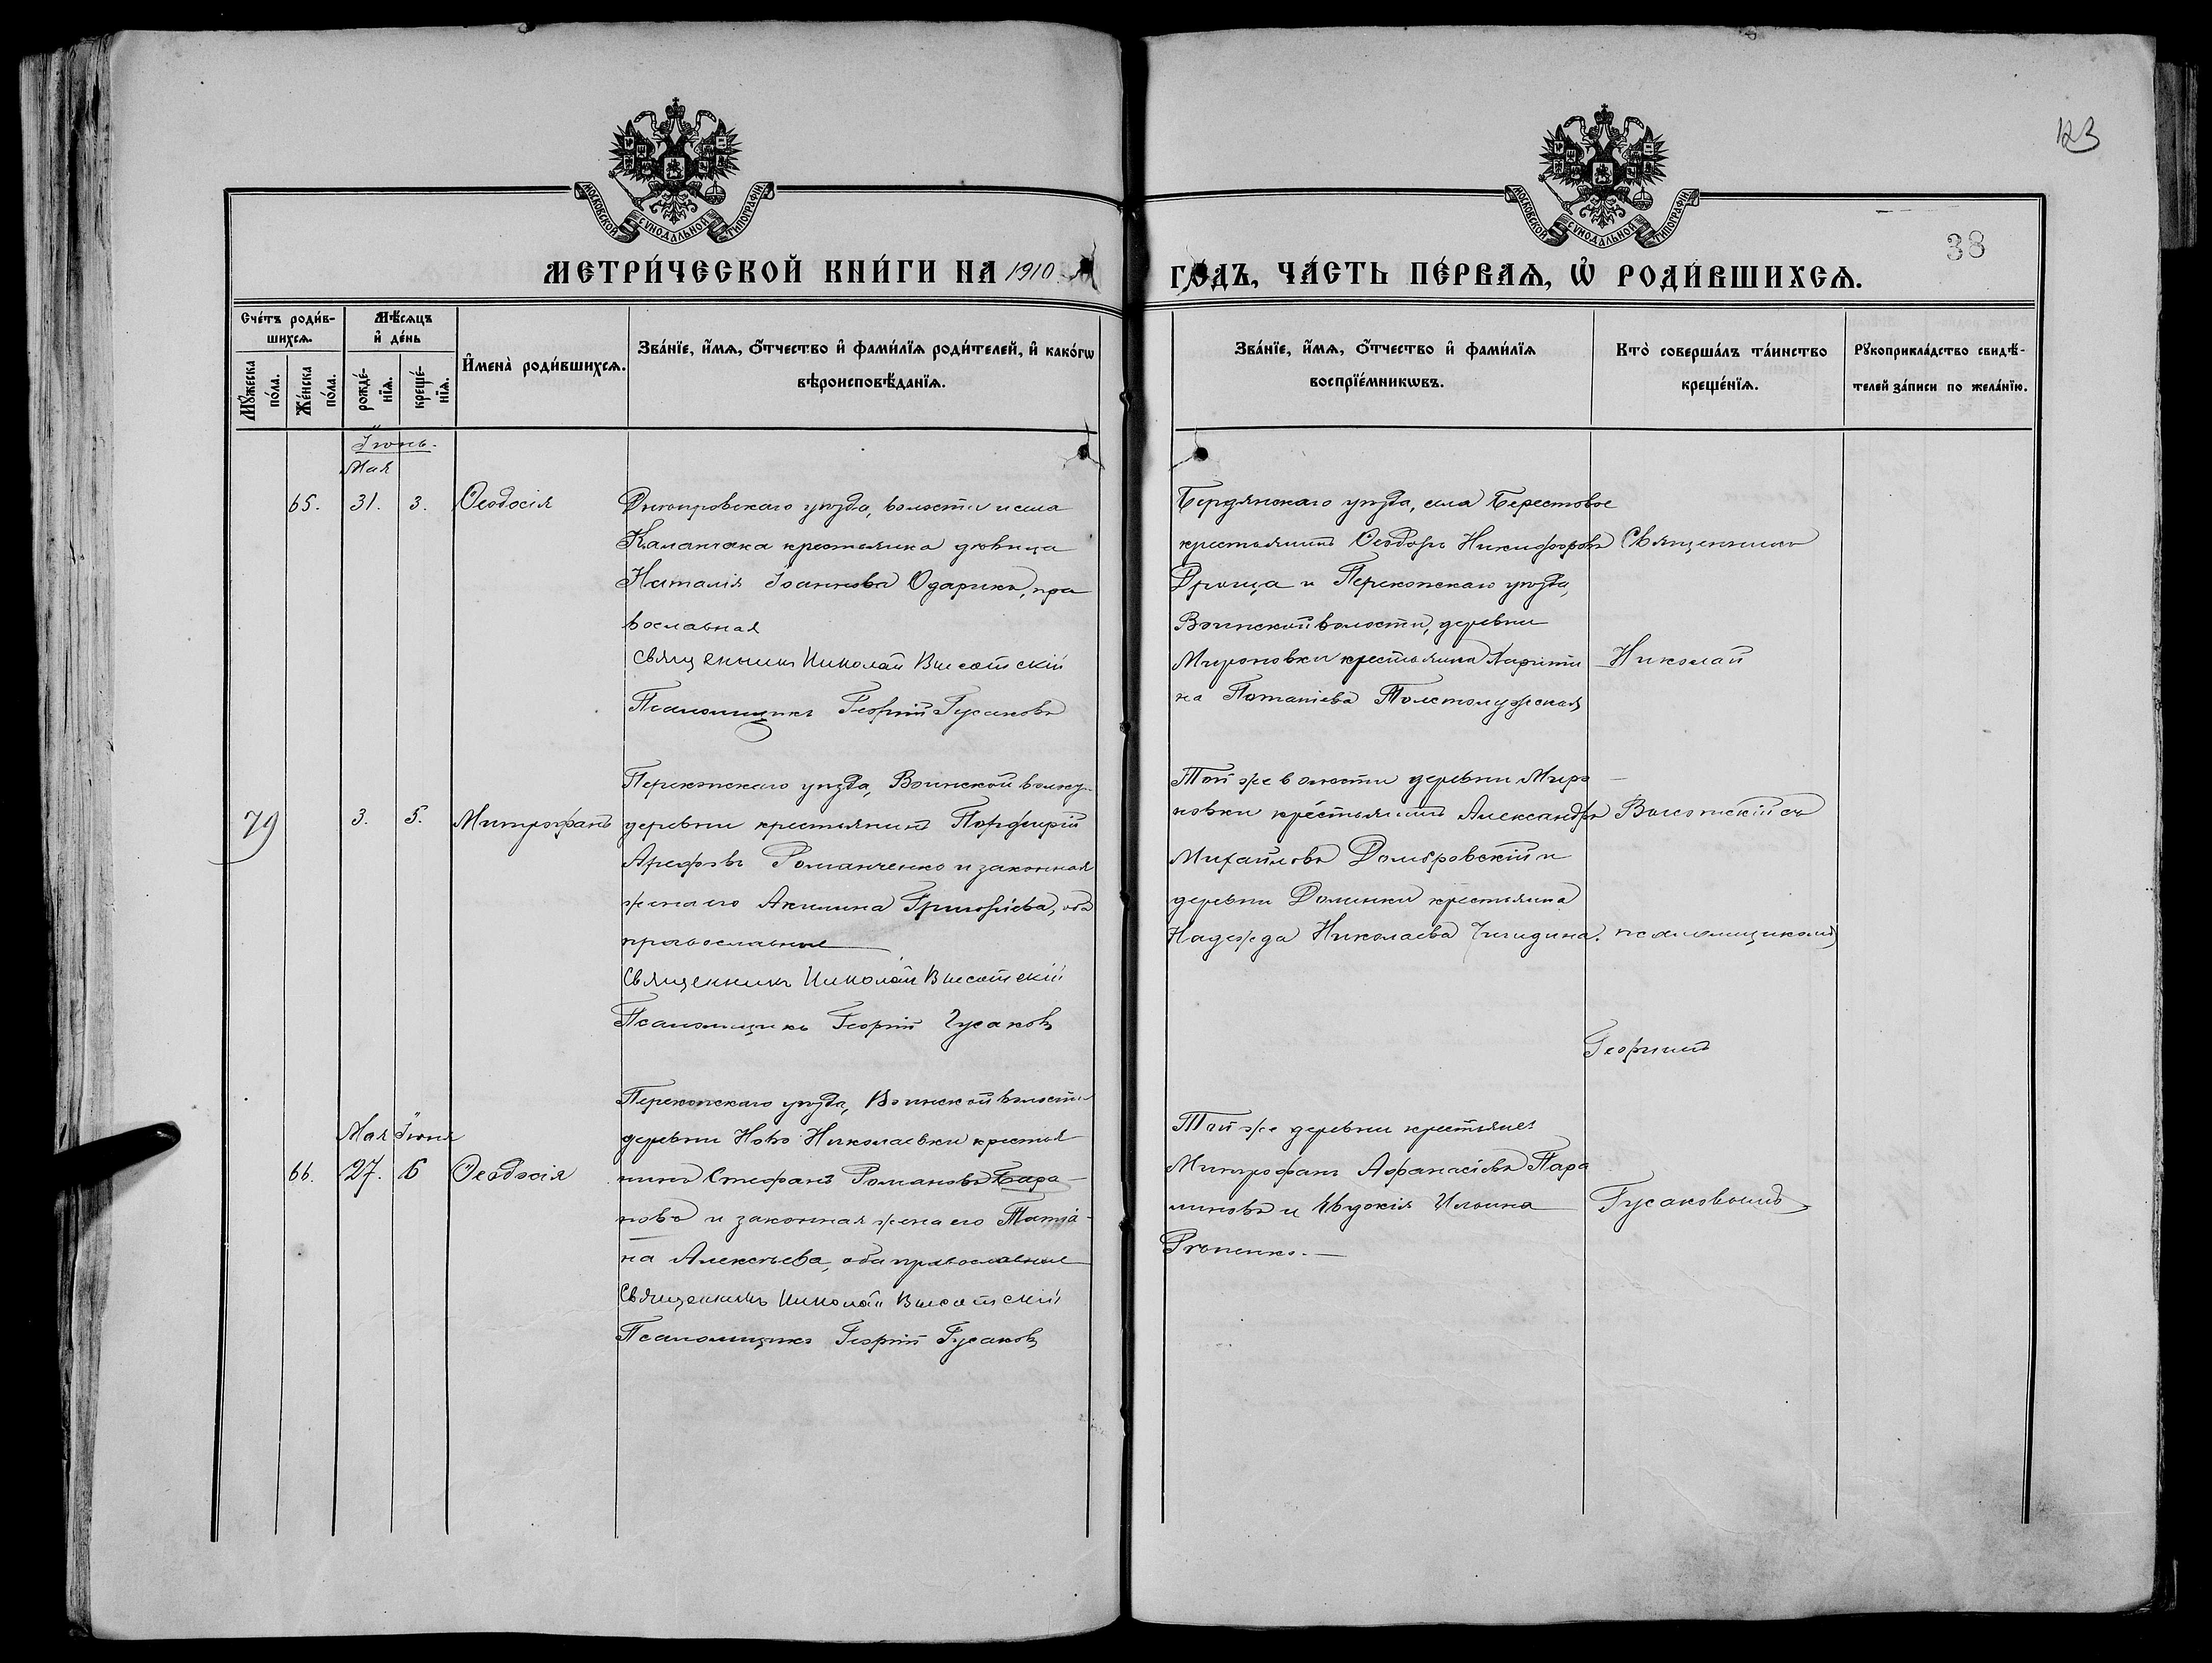 123
МОСКОВСКОЙ СѴНОДАЛЬНОЙ ТИПОГРАФІИ
МОСКОВСКОЙ СѴНОДАЛЬНОЙ ТИПОГРАФІИ
38
МЕТРИ́ЧЕСКОЙ КНИ́ГИ НА 1910
ГО́ДЪ, ЧА́СТЬ ПЕ́РВАѦ, Ѡ҆ РОДИ́ВШИХСѦ.
Сче́тъ роди́в-
шихсѧ.
Мꙋ́жеска по́ла.
Же́нска по́ла.
Мѣ́сѧцъ
и҆ де́нь
рожде́-
нїѧ.
креще́-
нїѧ.
И҆мена̀ роди́вшихсѧ.
Зва́нїе, и҆́мѧ, ѻ҆́тчество и҆ фами́лїѧ роди́телей, и҆ како́гѡ
вѣроисповѣ́данїѧ.
Зва́нїе, и҆́мѧ, ѻ҆́тчество и҆ фами́лїѧ
воспрїе́мникѡвъ.
Кто̀ соверша́лъ та́инство
креще́нїѧ.
Рꙋкоприкла́дство свидѣ́-
телей за́писи по жела́нїю.
Іюнь.
Мая
65. 31. 3. Ѳеодосія
Днѣпровскаго уѣзда, волости и села
Каланчака крестьянка дѣвица
Наталія Іоаннова Одарикъ, пра
вославная
Священникъ Николай Высотскій
Псаломщикъ Георгій Гусаковъ
Бердянскаго уѣзда, села Берестовое
крестьянинъ Ѳеодоръ Никифоровъ
и Перекопскаго уѣзда,
Воинской волости, деревни
Мироновки крестьянка Харити
на Потапіева
Священникъ
Николай
79 3. 5. Митрофанъ
Перекопскаго уѣзда, Воинской
деревни крестьянинъ Порфирій
Арефовъ Романченко и законная
жена его Акилина Григоріева, оба
православные
Священникъ Николай Высотскій
Псаломщикъ Георгій Гусаковъ
Той же волости деревни Миро
новки крестьянинъ Александръ
Михайловъ Домбровскій и
деревни крестьянка
Надежда Николаева Чигидина.
Высотскій съ
псаломщикомъ
Георгіемъ
Мая Іюня
66. 27. 6 Ѳеодосія
Перекопскаго уѣзда, Воинской волости
деревни Ново Николаевки крестья
нинъ Стефанъ Романовъ Бара-
новъ и законная жена его Татіа-
на Алексѣева, оба православные
Священникъ Николай Высотскій
Псаломщикъ Георгій Гусаковъ
Той же деревни крестьяне:
Митрофанъ Афанасіевъ Пара
моновъ и Евдокія Ильина
Гусаковымъ